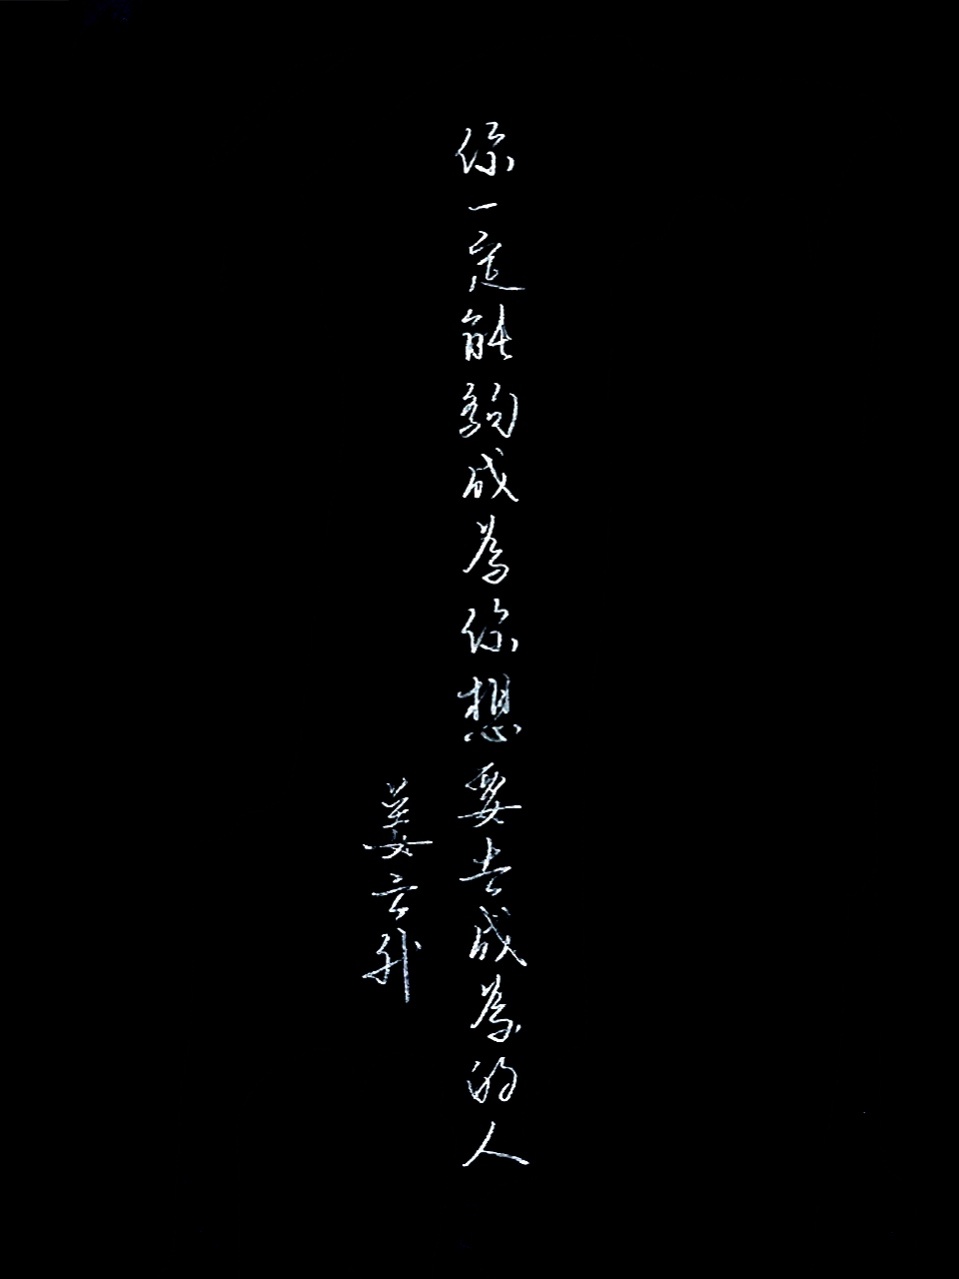 你一定能夠成為你想要去成為的人
姜云升